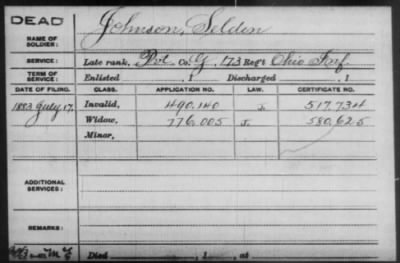 DEAD
NAME OF
SOLDIER:
Johnson, Selden
SERVICE:
Late rank, Pvt Co. G, 173 Reg't Ohio Inf.
TERM OF
SERVICE:
Enlisted , 1 Discharged , 1
DATE OF FILING. CLASS. APPLICATION NO. LAW. CERTIFICATE NO.
1883 July 17. Invalid, 490.140 J. 517.734
Widow, 776.005 J. 580.625
Minor,
ADDITIONAL
SERVICES:
REMARKS:
Died , 1 , at